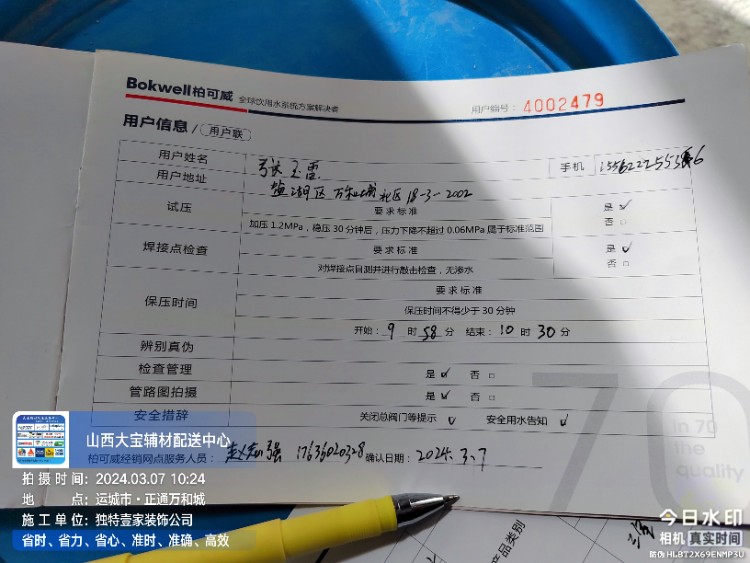 Bokwell柏可威 全球饮用水系统方案解决者
用户编号: 4002479
用户信息 / 用户联
用户姓名
手机
用户地址 盐湖区 社区 18-3-2002
试压 要求标准 是 ✓
加压 1.2MPa，稳压 30 分钟后，压力下降不超过 0.06MPa 属于标准范围 否 □
焊接点检查 要求标准 是 ✓
对焊接点目测并进行敲击检查，无渗水 否 □
保压时间 要求标准
保压时间不得少于 30 分钟
开始: 9 时 58 分 结束: 10 时 30 分
辨别真伪
检查管理 是 ✓ 否 □
管路图拍摄 是 ✓ 否 □
安全措辞 关闭总阀门等提示 ✓ 安全用水告知 ✓
柏可威经销网点服务人员: 强 17636020328 确认日期: 2024.3.7
70
in 70
the
quality
产品类别
山西大宝辅材配送中心
拍摄时间: 2024.03.07 10:24
地点: 运城市·正通万和城
施工单位: 独特壹家装饰公司
省时、省力、省心、准时、准确、高效
今日水印
相机 真实时间
防伪 HLBT2X69ENMP3U